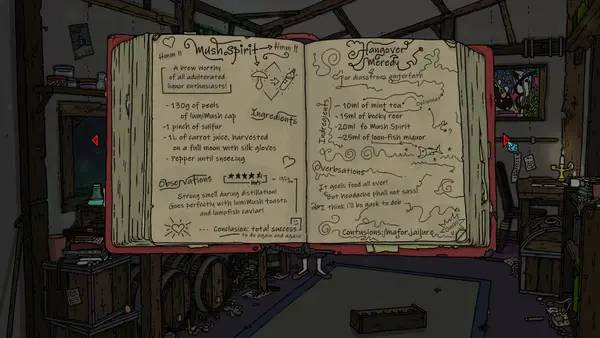 Hmm !!
Mush Spirit
Hmm !!
A brew worthy
of all adulterated
liquor enthusiasts!
Ingredients
- 130g of peels
of lumiMush cap
- 1 pinch of sulfur
of carrot juice, harvested
on a full moon with silk gloves
- Pepper until sneezing
Observations
Strong smell during distillation!
Goes perfectly with lumiMush toasts
and lampfish caviar!
... Conclusion: total success
to do again and again
Hangover
Meredy
For disastrous
Ingredients
- 10ml of mint tea
- 15ml of bocky reer
- 20ml fo Mush Spirit
- 25ml of loon-fish miquor
Overbsations
It goels food all ever!
But headache phall not sass!
I think i'll bo gack to deb
Contusions:/mafor jailure